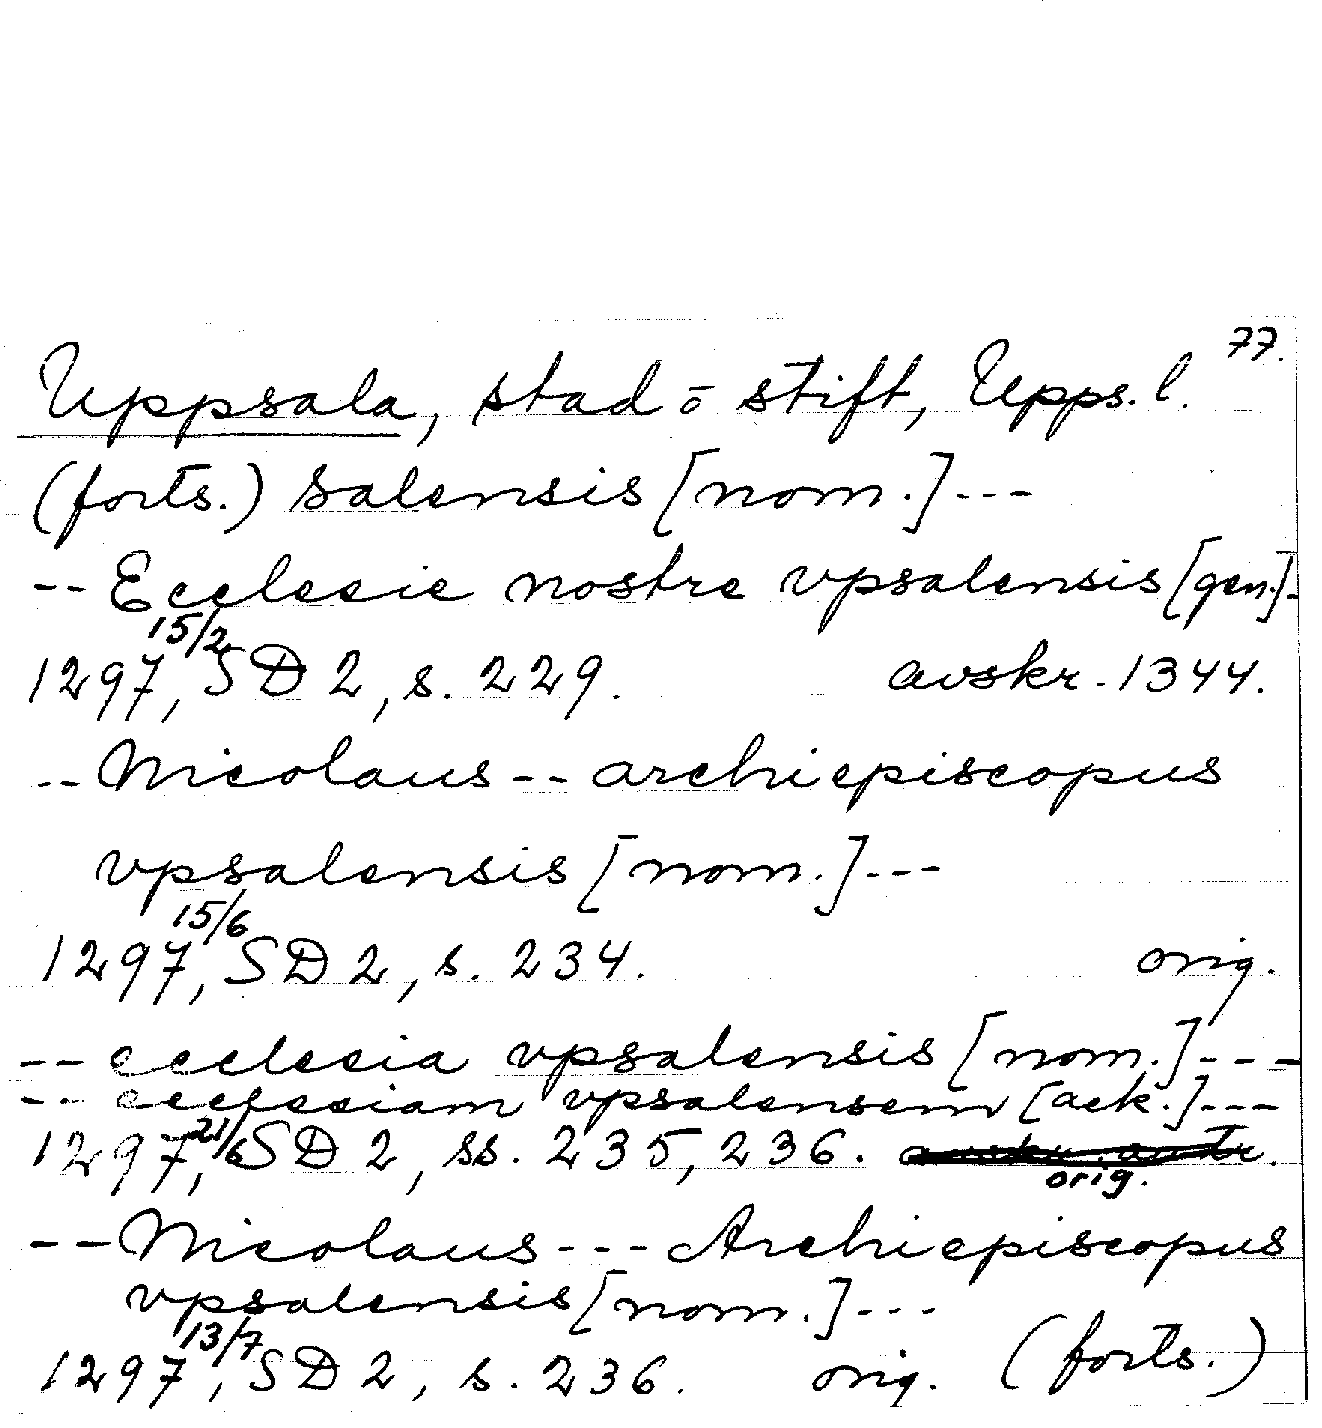 77.
Uppsala, stad o stift, Upps. l.
(forts.) salensis [nom.] ---
-- Ecclesie nostre vpsalensis [gen.]-
1297 15/2, SD 2, s. 229. avskr. 1344.
-- Nicolaus -- archiepiscopus
vpsalensis [nom.] ---
1297 15/6, SD 2, s. 234. orig.
-- ecclesia vpsalensis [nom.] ---
-- ecclesiam vpsalensem [ack.] ---
1297 21/6, SD 2, ss. 235, 236.
orig.
-- Nicolaus --- Archiepiscopus
vpsalensis [nom.] ---
1297 13/7, SD 2, s. 236. orig. (forts.)